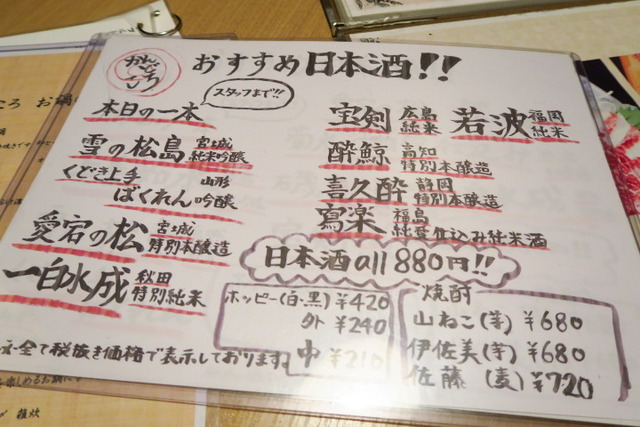 かんいちころ
おすすめ日本酒!!
スタッフまで!!
本日の一本
雪の松島 宮城 純米吟醸
くどき上手 山形
ばくれん 吟醸
愛宕の松 宮城 特別本醸造
一白水成 秋田 特別純米
宝剣 広島 純米
若波 福岡 純米
酔鯨 高知 特別本醸造
喜久酔 静岡 特別本醸造
寫楽 福島 純愛仕込み純米酒
日本酒all 880円!!
ホッピー(白・黒) ¥420
外 ¥240
中 ¥210
焼酎
山ねこ(芋) ¥680
伊佐美(芋) ¥680
佐藤(麦) ¥720
全て税抜き価格で表示しております
雑炊